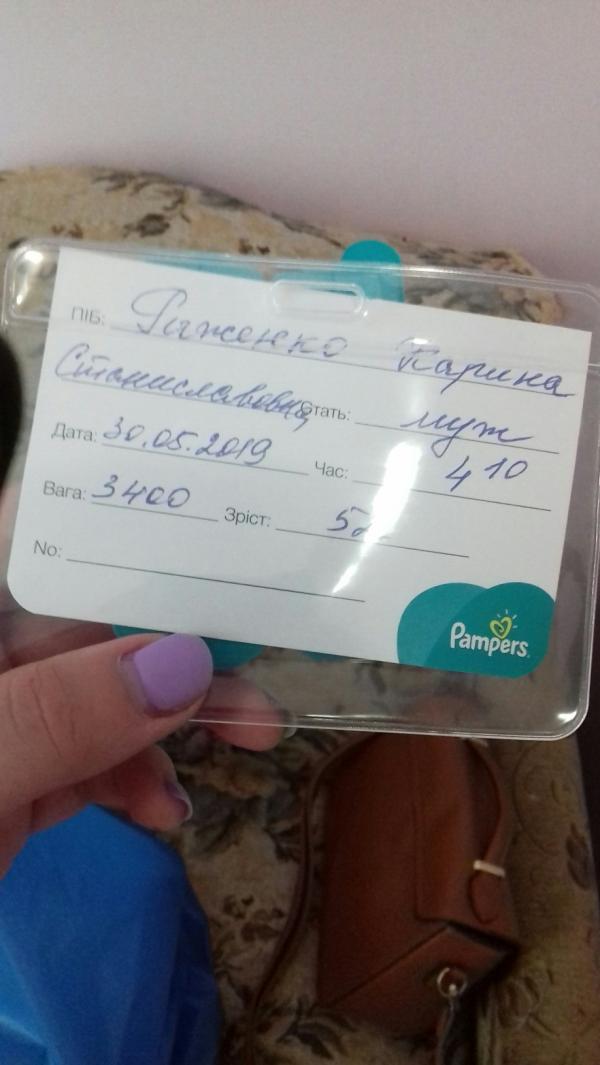 ПІБ: Риженко Карина
Станиславовна Стать: муж
Дата: 30.05.2019 Час: 4 10
Вага: 3400 Зріст: 52
No:
Pampers